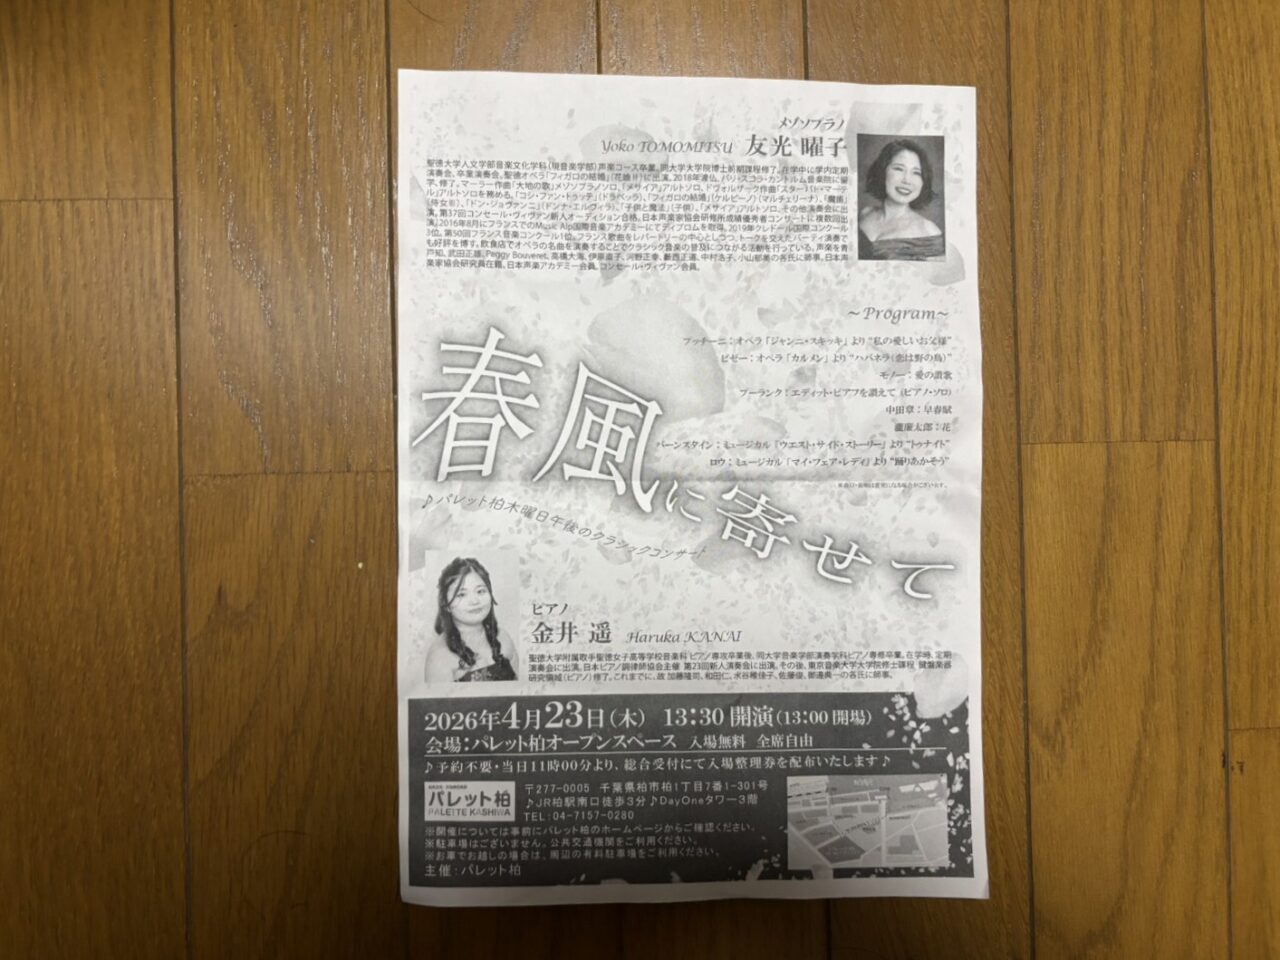 メゾソプラノ
Yoko TOMOMITSU 友光 曜子
聖徳大学人文学部音楽文化学科(現音楽学部)声楽コース卒業。同大学大学院博士前期課程修了。在学中に学内定期
演奏会、卒業演奏会、聖徳オペラ「フィガロの結婚」(花娘Ⅱ)に出演。2018年渡仏、パリ・スコラ・カントルム音楽院に留
学、修了。マーラー作曲「大地の歌」メゾソプラノソロ、「メサイア」アルトソロ、ドヴォルザーク作曲「スターバト・マーテ
ル」アルトソロを務める。「コジ・ファン・トゥッテ」(ドラベッラ)、「フィガロの結婚」(ケルビーノ)(マルチェリーナ)、「魔笛」
(侍女Ⅲ)、「ドン・ジョヴァンニ」(ドンナ・エルヴィラ)、「子供と魔法」(子供)、「メサイア」アルトソロ、その他演奏会に出
演。第37回コンセール・ヴィヴァン新人オーディション合格。日本声楽家協会研修所成績優秀者コンサートに複数回出
演。2016年8月にフランスでのMusic Alp国際音楽アカデミーにてディプロムを取得。2019年クレドール国際コンクール
3位。第50回フランス音楽コンクール1位。フランス歌曲をレパートリーの中心としつつ、トークを交えたパーティ演奏で
も好評を博す。飲食店でオペラの名曲を演奏することでクラシック音楽の普及につながる活動を行っている。声楽を青
戸知、武田正雄、Peggy Bouveret、高橋大海、伊原直子、河野正幸、藪西正道、中村浩子、小山郁美の各氏に師事。日本声
楽家協会研究員在籍。日本声楽アカデミー会員。コンセール・ヴィヴァン会員。
～Program～
プッチーニ：オペラ「ジャンニ・スキッキ」より“私の愛しいお父様”
ビゼー：オペラ「カルメン」より“ハバネラ(恋は野の鳥)”
モノー：愛の讃歌
プーランク：エディット・ピアフを讃えて (ピアノ・ソロ)
中田章：早春賦
瀧廉太郎：花
バーンスタイン：ミュージカル「ウエスト・サイド・ストーリー」より“トゥナイト”
ロウ：ミュージカル「マイ・フェア・レディ」より“踊りあかそう”
※曲目・曲順は変更になる場合がございます。
春風に寄せて
♪パレット柏木曜日午後のクラシックコンサート
ピアノ
金井 遥 Haruka KANAI
聖徳大学附属取手聖徳女子高等学校音楽科 ピアノ専攻卒業後、同大学音楽学部演奏学科ピアノ専修卒業。在学時、定期
演奏会に出演。日本ピアノ調律師協会主催 第23回新人演奏会に出演。その後、東京音楽大学大学院修士課程 鍵盤楽器
研究領域(ピアノ)修了。これまでに、故 加藤隆司、和田仁、水谷稚佳子、佐藤俊、御邊典一の各氏に師事。
2026年4月23日(木) 13:30 開演(13:00 開場)
会場：パレット柏オープンスペース 入場無料 全席自由
♪予約不要・当日11時00分より、総合受付にて入場整理券を配布いたします♪
パレット柏
PALETTE KASHIWA
〒277-0005 千葉県柏市柏1丁目7番1-301号
♪JR柏駅南口徒歩3分♪DayOneタワー3階
TEL:04-7157-0280
※開催については事前にパレット柏のホームページからご確認ください。
※駐車場はございません。公共交通機関をご利用ください。
※お車でお越しの場合は、周辺の有料駐車場をご利用ください。
主催：パレット柏